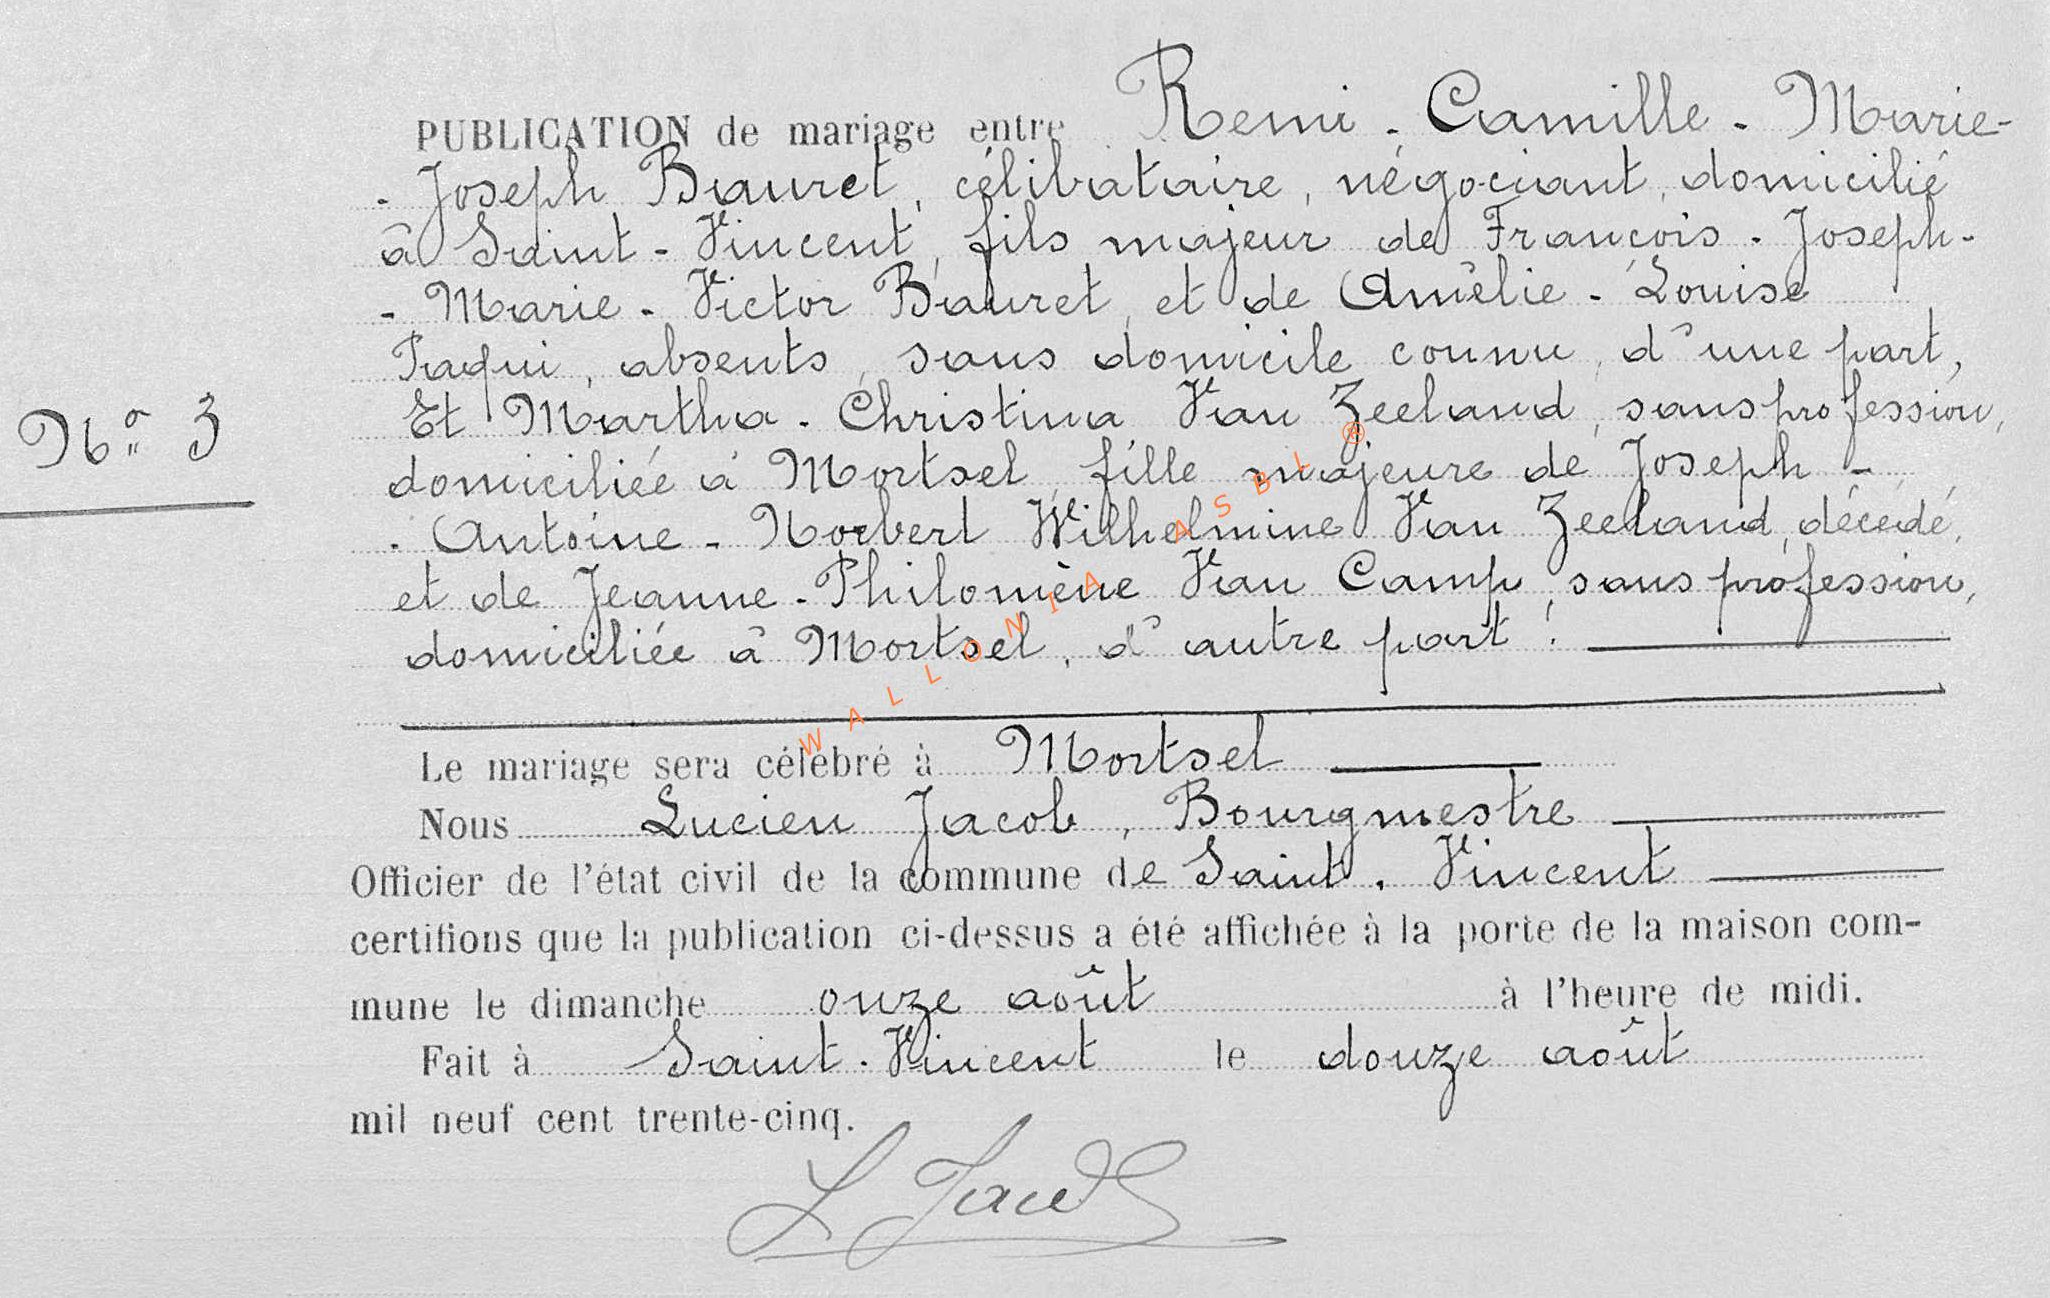 PUBLICATION de mariage entre Remi - Camille - Marie-
- Joseph Bauret, célibataire, négociant, domicilié
à Saint - Vincent, fils majeur de François - Joseph -
- Marie - Victor Bauret, et de Amélie - Louise
Paqui, absents, sans domicile connu, d'une part,
Nº 3
Et Martha - Christina Van Zeeland, sans profession,
domiciliée à Mortsel, fille majeure de Joseph -
- Antoine - Norbert Wilhelmine Van Zeeland, décédé,
et de Jeanne - Philomène Van Camp, sans profession,
domiciliée à Mortsel, d'autre part.
Le mariage sera célébré à Mortsel
Nous Lucien Jacob, Bourgmestre
Officier de l'état civil de la commune de Saint - Vincent
certifions que la publication ci-dessus a été affichée à la porte de la maison com-
mune le dimanche onze août à l'heure de midi.
Fait à Saint - Vincent le douze août
mil neuf cent trente-cinq.
L Jacob
WALLONIA ASBL ®